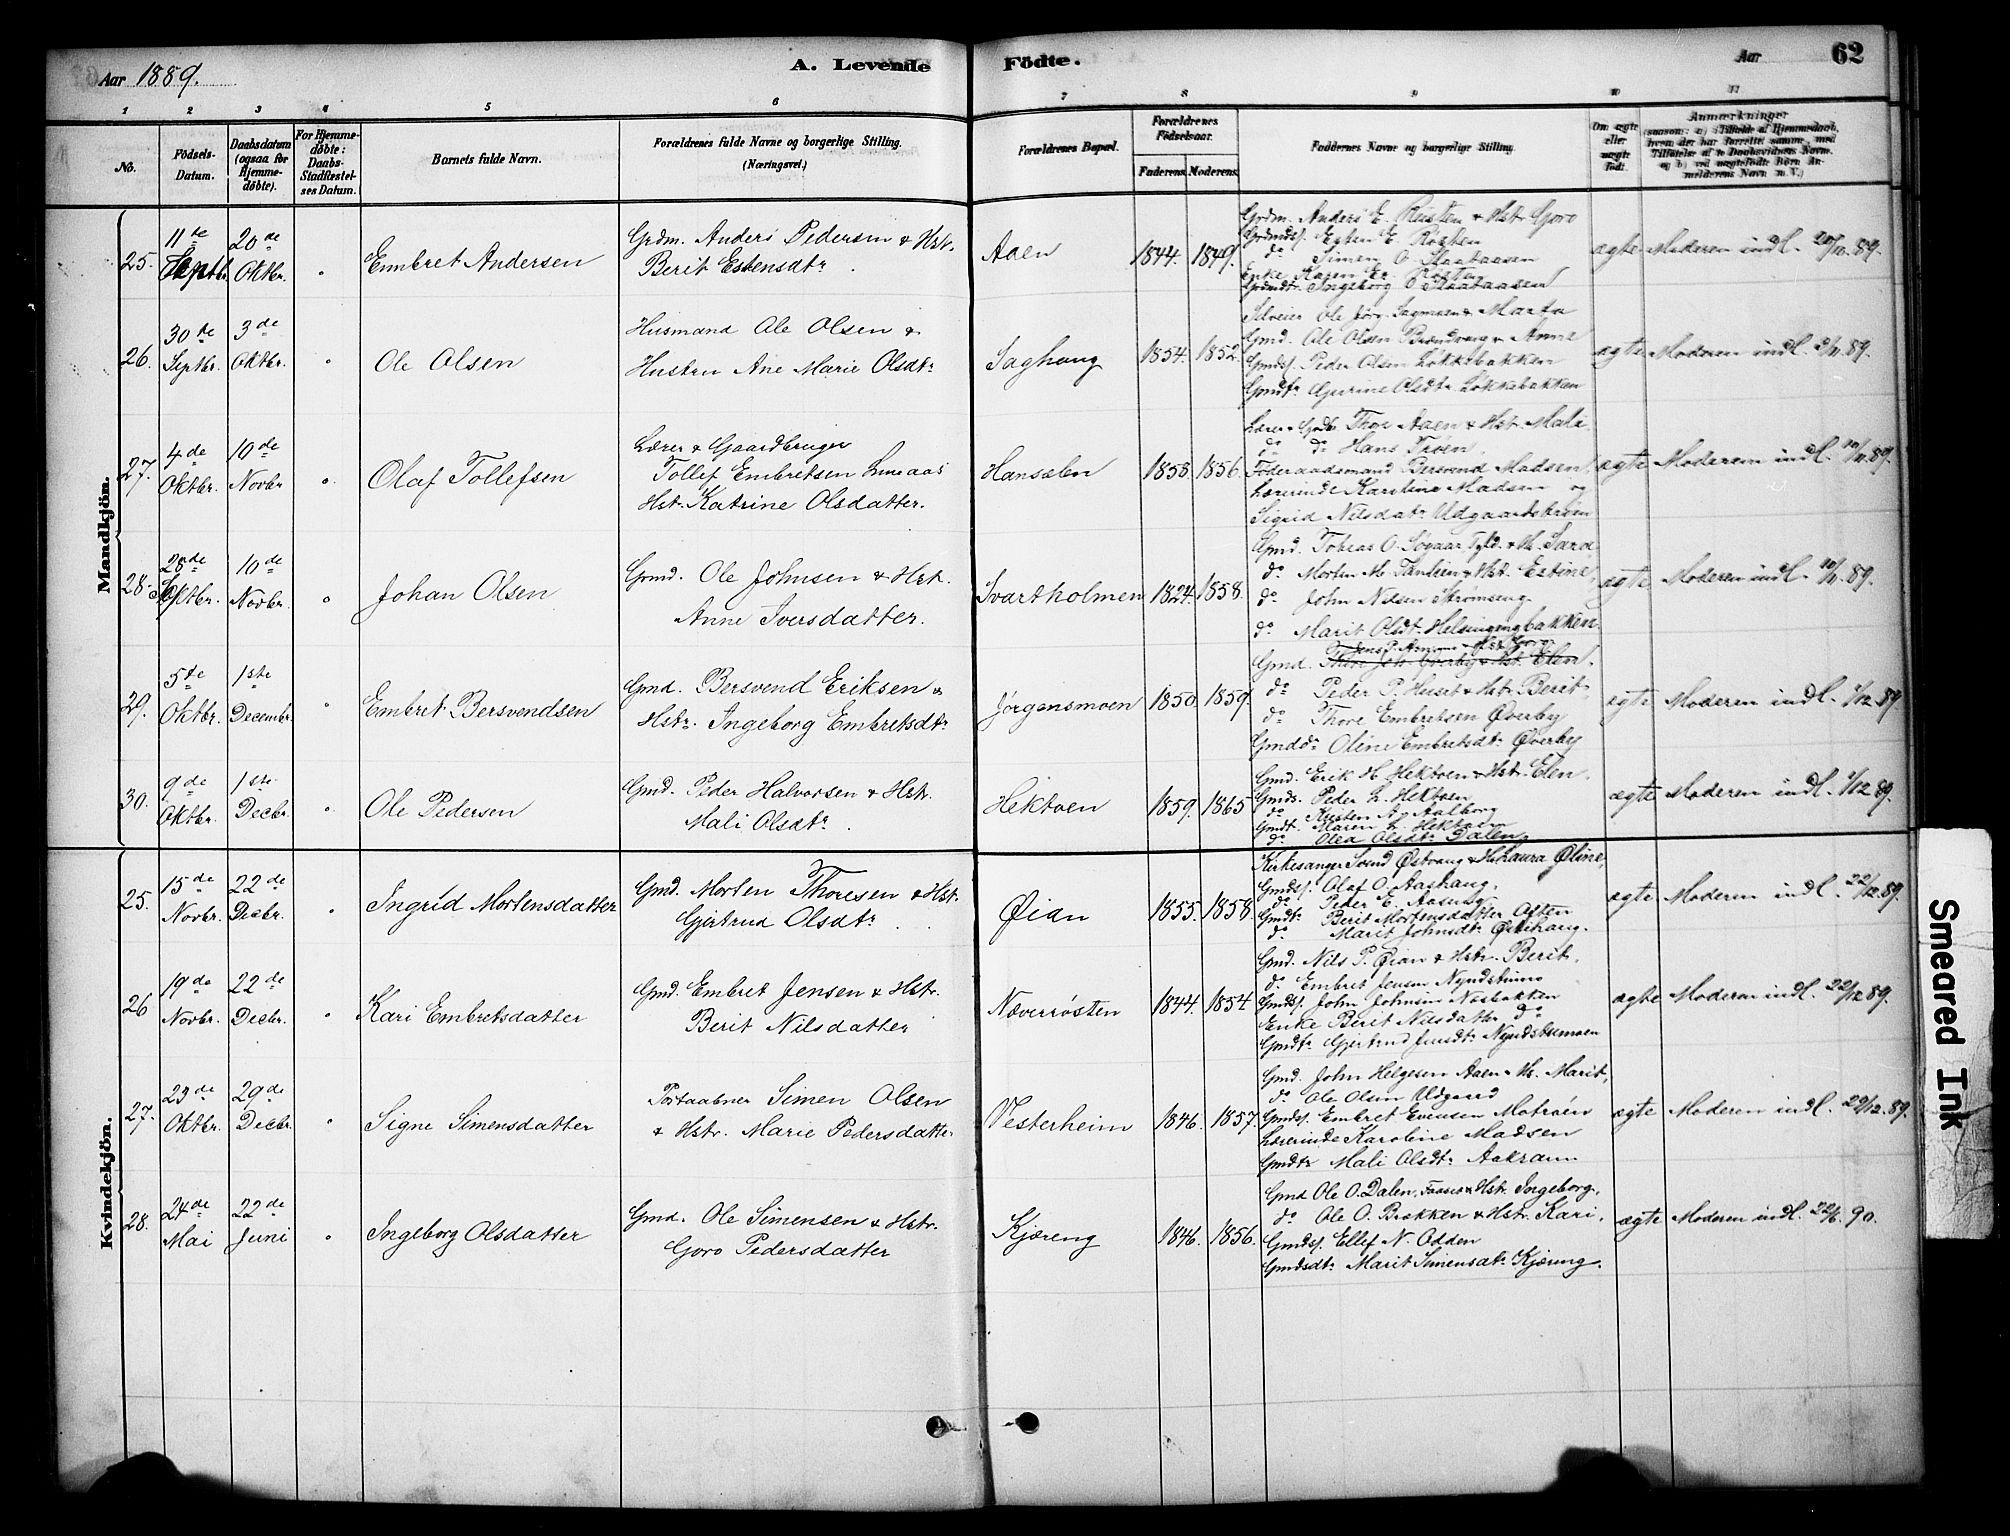 Aar 1889.
A. Levende Födte.
Aar 62
1 2 3 4 5 6 7 8 9 10 11
No.
Födsels-Datum.
Daabsdatum (ogsaa for Hjemme-döbte).
For Hjemme-döbte: Daabs-Stadfestel-ses Datum.
Barnets fulde Navn.
Forældrenes fulde Navne og borgerlige Stilling. (Næringsvei.)
Forældrenes Bopæl.
Forældrenes Födselsaar.
Faderens. Moderens.
Faddernes Navne og borgerlige Stilling.
Om ægte eller uægte födt.
Anmærkninger
Mandkjön.
25. 11te Septbr. 20de Oktbr. " Embret Andersen
Grdm. Anders Pedersen & Hstr.
Berit Estensdtr.
Aaen 1844. 1849.
Grdm. Anders E. Røsten & Hstr. Goro
Grdmds. Esten E. Røsten
do Simen O. Staataasen
Enke Karen Er. Røsten
Grdmdtr. Ingeborg O. Staataasen
ægte Moderen indl. 20/10.89.
26. 30te Septbr. 3de Oktbr. " Ole Olsen
Husmand Ole Olsen &
Hustru Ane Marie Olsdtr
Saghaug 1854. 1852.
Selveier Ole Jörg. Sagmoen & Marta
Gmd. Ole Olsen Brandvang & Anne
Gmds. Peder Olsen Løkkebakken
Gmdtr. Gurine Olsdtr Løkkebakken
ægte Moderen indl. 3/11.89.
27. 4de Oktbr. 10de Novbr " Olaf Tollefsen
Lærer & Gaardbruger
Tollef Embretsen Luneaas
Hst. Katrine Olsdatter.
Hansælen 1853. 1856.
Lærer & Grdbr. Thore Aaen & Hst. Mali.
do do Hans Trøen.
Föderaadsmand Bersvend Madsen,
Lærerinde Karoline Madsen og
Sigrid Nilsdatr Udgaardstrøen
ægte Moderen indl. 10/11.89.
28. 28de Septbr. 10de Novbr. " Johan Olsen
Grmd. Ole Johnsen & Hstr.
Anne Iversdatter.
Svartholmen 1824. 1858.
Gmd. Tobias O. Søgaar, Tyld. & H. Sara
do Morten M. Tanlien & Hst. Estine,
do John Nilsen Strømseng
do Marit Olsdtr. Helsingengbakken.
ægte Moderen indl. 10/11.89.
29. 5te Oktbr. 1ste Decembr. " Embret Bersvendsen
Gmd. Bersvend Eriksen &
Hstr. Ingeborg Embretsdtr
Jørgensmoen 1850. 1859.
Gmd. Thore Joh. Øverby & Hst. Elen.
do Peder P. Huset & Hstr. Berit,
do Thore Embretsen Øverby
Gmddr Oline Embretsdtr Øverby
ægte Moderen indl. 1/12.89.
30. 9de Oktbr. 1ste Decbr. " Ole Pedersen
Gmd. Peder Halvorsen & Hstr.
Mali Olsdtr.
Hektoen 1859. 1865
Gmd. Erik H. Hektoen & Hstr. Elen.
Gmds. Peder L. Hektoen
do Kristen A. Aalborg
Gmdt. Maren L. Hektoen
do Olea Olsdtr. Dalen
ægte Moderen indl. 1/12 89.
Kvindekjön.
25. 15de Novbr. 22de Decbr. " Ingrid Mortensdatter
Gmd. Morten Thoresen & Hst.
Gjertrud Olsdtr.
Øian 1855. 1858.
Kirkesanger Svend Østvang & H. Laura Oline,
Gmds. Olaf O. Aashaug,
do Peder E. Aaseng,
Gmdtr Berit Mortensdatter Often
do Marit Johnsdtr Østihaug.
ægte Moderen indl. 22/12.89.
26 19de Novbr. 22de Decbr. " Kari Embretsdatter
Gmd. Embret Jensen & Hstr.
Berit Nilsdatter
Næverrøsten 1844. 1854
Gmd. Nils P. Øian & Hstr. Berit,
do Embret Jensen Nyndstumo
Gmds. John Johnsen Næsbakken
Enke Berit Nilsdatr do
Gmdtr Gjertrud Jensdtr Nyndstumoen
ægte Moderen indl. 22/12 89.
27. 23de Oktbr. 29de Decbr. " Signe Simensdatter
Postaabner Simen Olsen
& Hstr. Marie Pedersdatter
Vesterheim 1846. 1857.
Gmd. John Helgesen Aaen & H. Marit,
do Ole Olsen Udgaard
Gmds. Embret Evensen Motrøen
Lærerinde Karoline Madsen
Gmdtr Mali Olsdtr Aakrann
ægte Moderen indl. 29/12.89.
28. 24de Mai 22de Juni " Ingeborg Olsdatter
Gmd. Ole Simensen & Hstr.
Goro Pedersdatter
Kjæreng 1846. 1856.
Gmd Ole O. Dalen, Faaset & Hst. Ingeborg,
do Ole O. Brekken & Hstr. Kari,
Gmds. Ellef N. Odden
Gmdsdtr. Marit Simensdtr Kjæreng.
ægte Moderen indl. 22/6. 90.
Smeared Ink